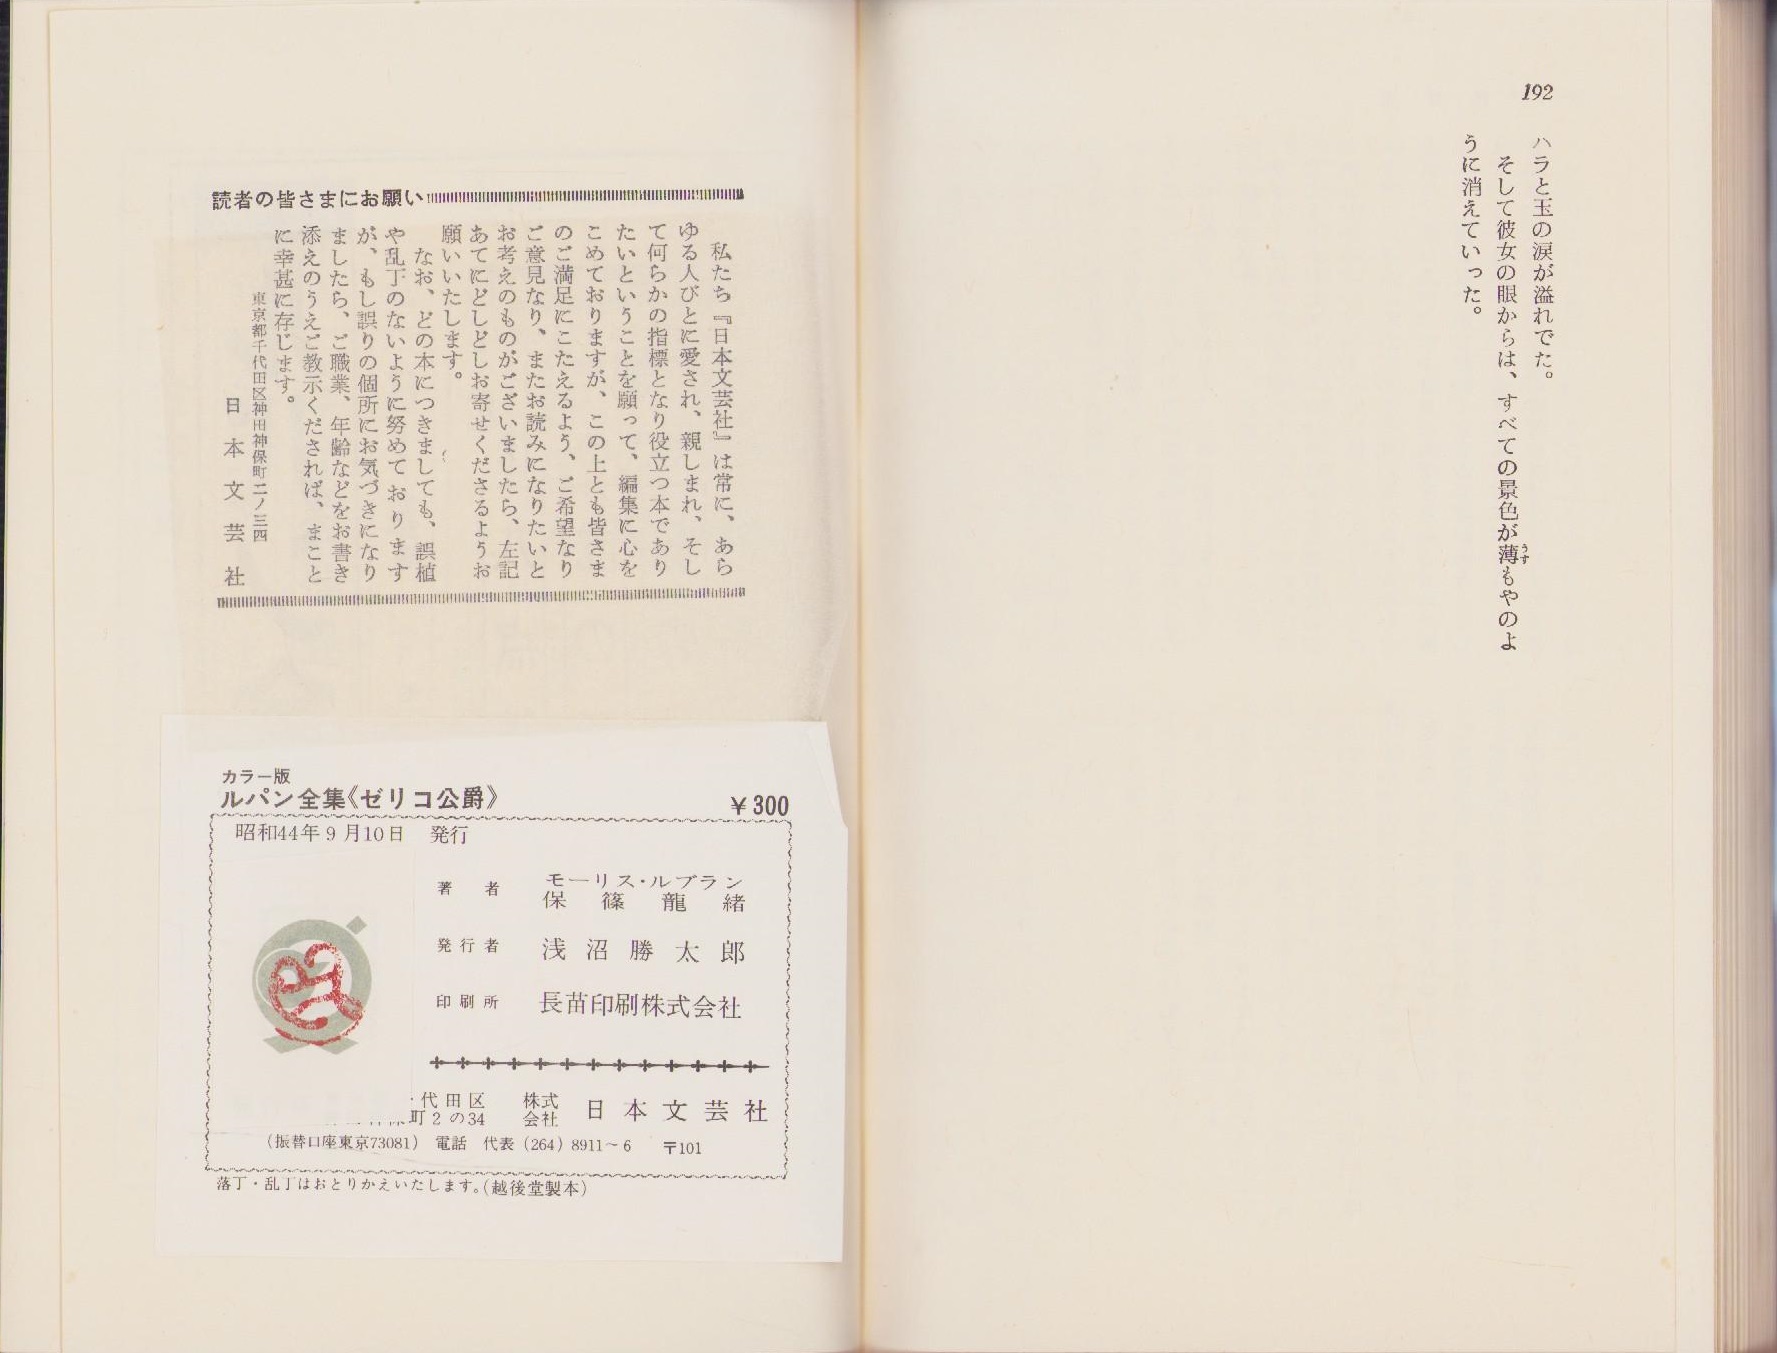 192
ハラと玉の涙が溢れでた。
そして彼女の眼からは、すべての景色が薄もやのよ
うす
うに消えていった。
読者の皆さまにお願い
私たち『日本文芸社』は常に、あら
ゆる人びとに愛され、親しまれ、そし
て何らかの指標となり役立つ本であり
たいということを願って、編集に心を
こめておりますが、この上とも皆さま
のご満足にこたえるよう、ご希望なり
ご意見なり、またお読みになりたいと
お考えのものがございましたら、左記
あてにどしどしお寄せくださるようお
願いいたします。
なお、どの本につきましても、誤植
や乱丁のないように努めております
が、もし誤りの個所にお気づきになり
ましたら、ご職業、年齢などをお書き
添えのうえご教示くだされば、まこと
に幸甚に存じます。
東京都千代田区神田神保町二ノ三四
日本文芸社
カラー版
ルパン全集《ゼリコ公爵》
¥300
昭和44年9月10日 発行
著者 モーリス・ルブラン
保篠龍緒
発行者 浅沼勝太郎
印刷所 長苗印刷株式会社
代田区
町2の34
株式会社 日本文芸社
(振替口座東京73081) 電話 代表(264)8911~6 〒101
落丁・乱丁はおとりかえいたします。(越後堂製本)